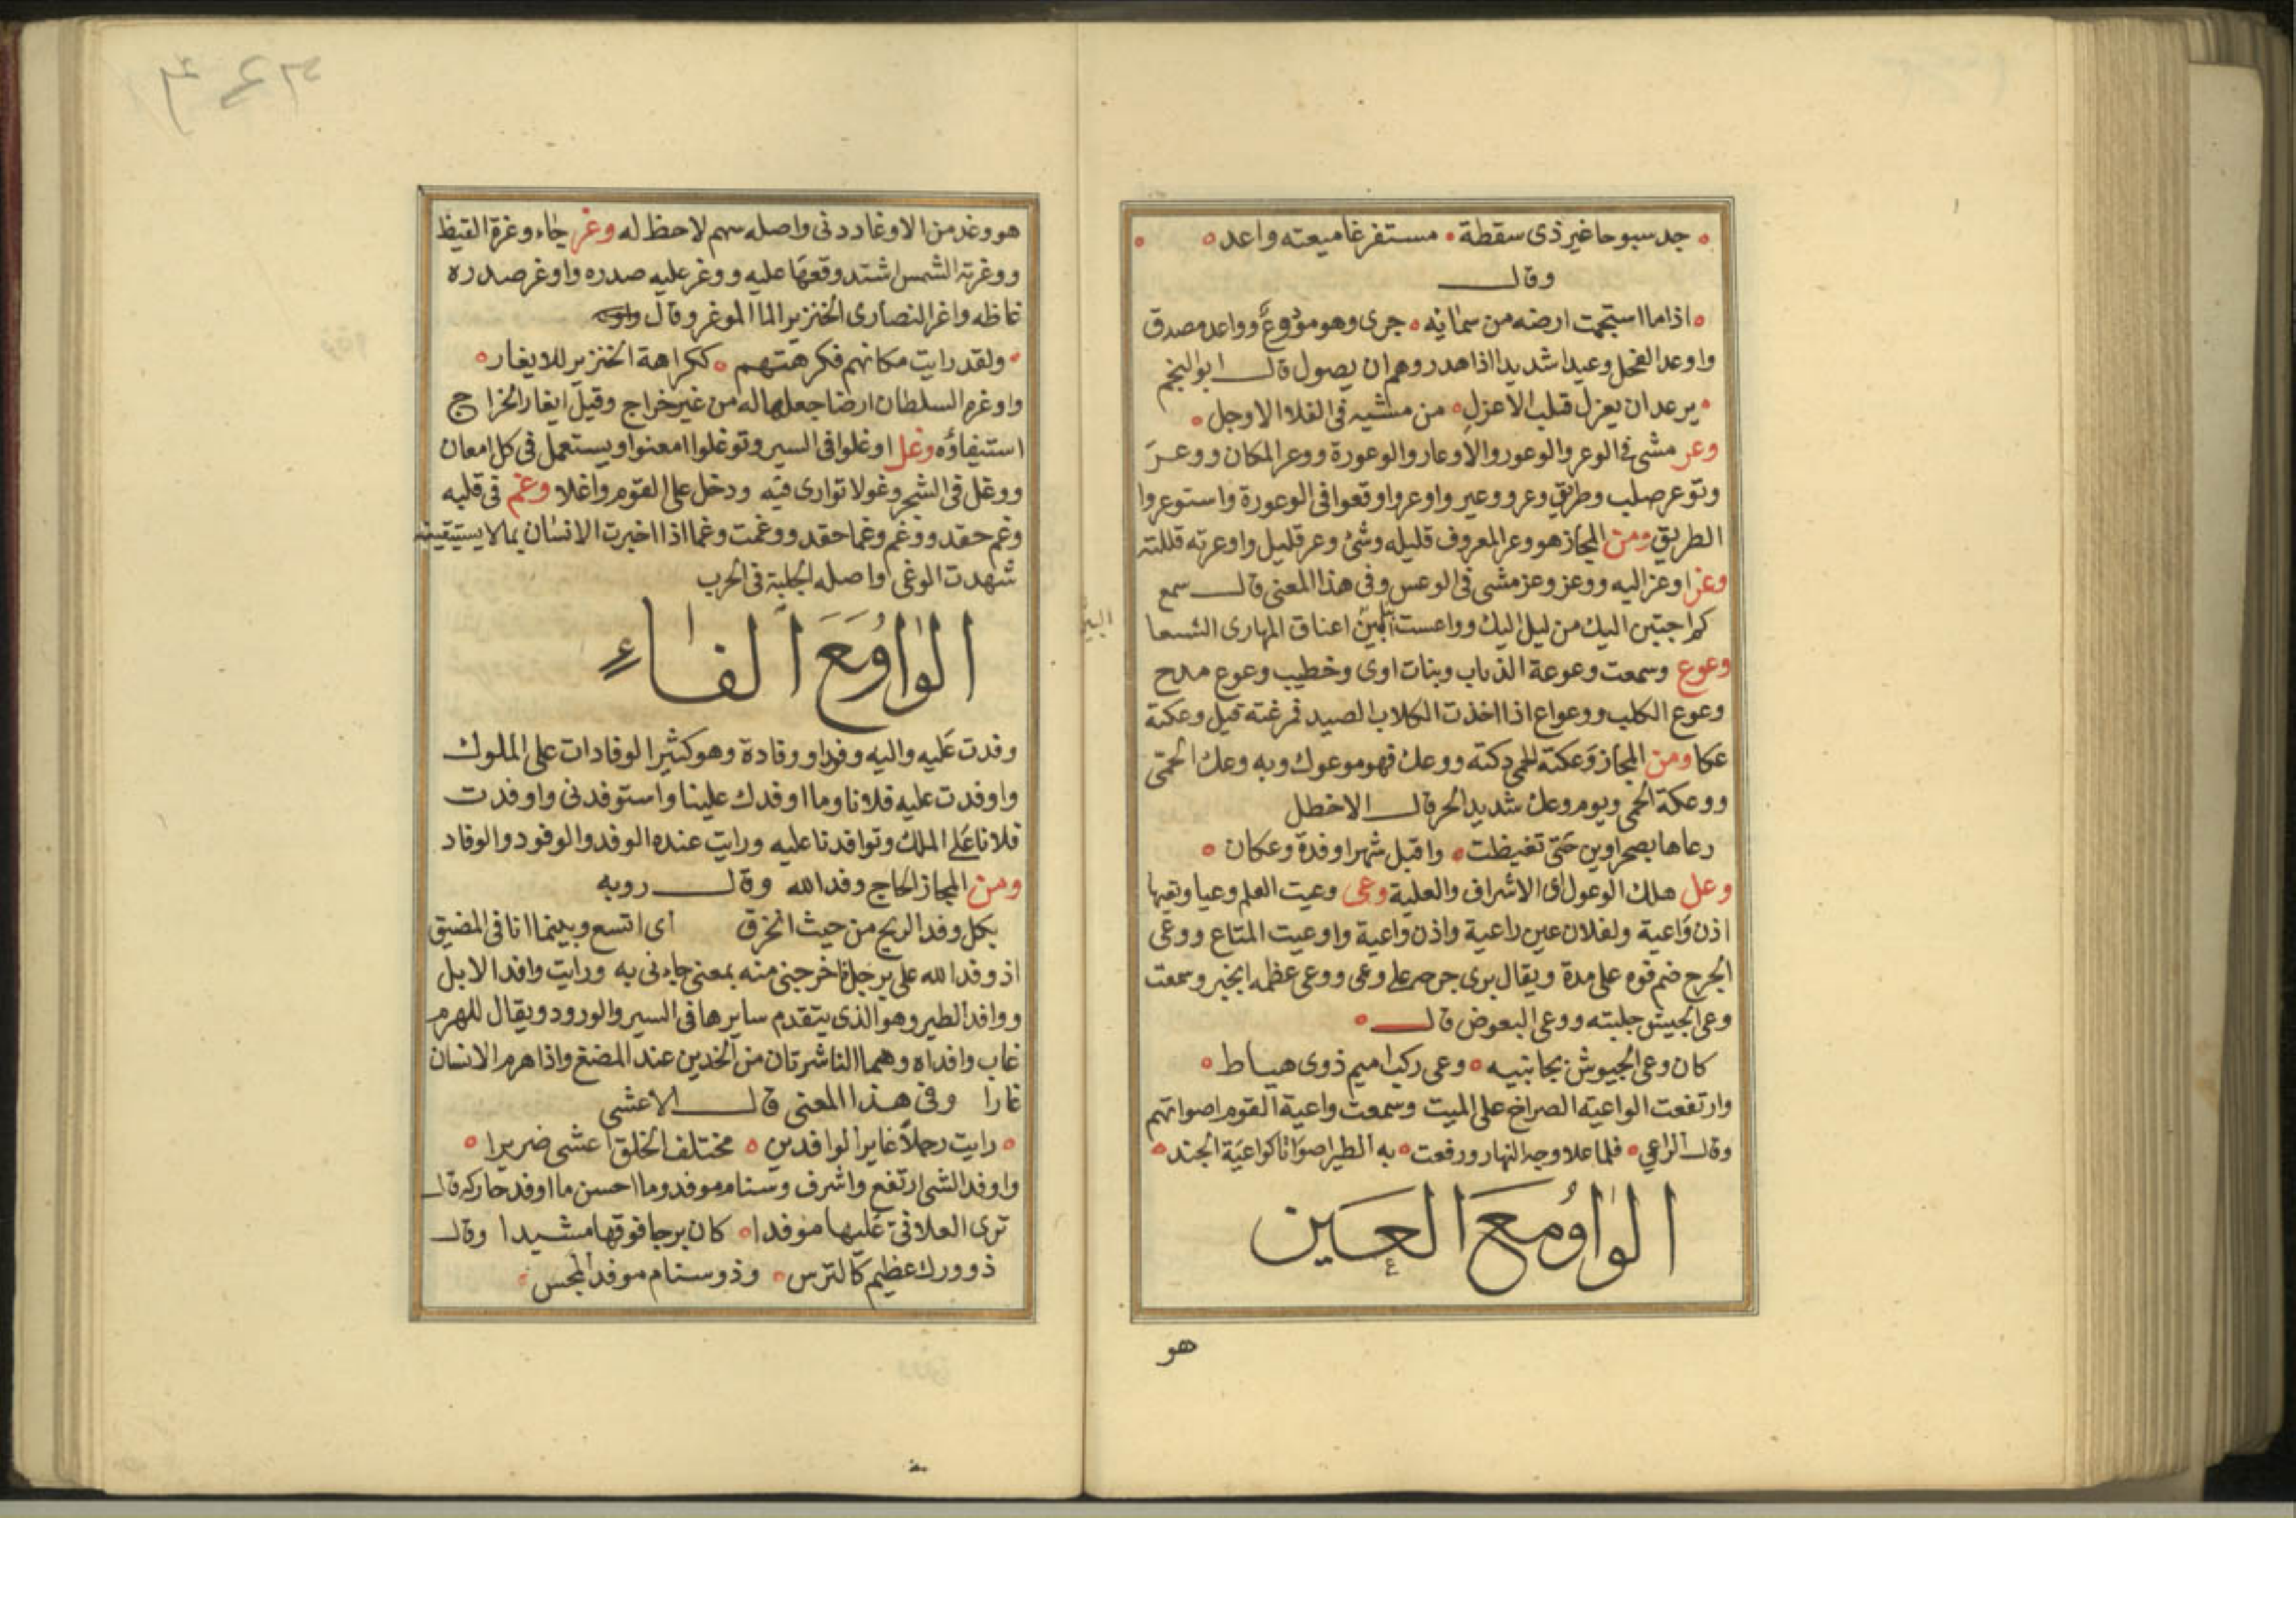 جد سبوحا غير ذى سقطة مستفرغا ميعته واعد
وقال
اذا ما استجمت ارضه من سمائه جرى وهو مودوع وواعد مصدق
واوعد الفحل وعيدا شديدا اذا هدر وهم ان يصول قال ابو النجم
يرعد ان يعزل قلب الاعزل من مشيه فى الفلا الاوجل
وعر مشى فى الوعر والوعور والاوعار والوعورة ووعر المكان ووعر
وتوعر صلب وطريق وعر ووعير واوعروا وقعوا فى الوعورة واستوعروا
الطريق ومن المجاز هو وعر المعروف قليله وشئ وعر قليل واوعرته قللته
وعز اوعز اليه ووعز وعز مشى فى الوعس وفى هذا المعنى قال سمع
كم اجتبن اليك من ليل اليك وواعست البين اعناق المهارى الشسعا
البين
وعوع وسمعت وعوعة الذئاب وبنات اوى وخطيب وعوع مدح
وعوع الكلب ووعواع اذا اخذت الكلاب الصيد فمرغته قيل وعكته
عكا ومن المجاز وعكته الحمى دكته ووعك فهو موعوك وبه وعك الحمى
ووعكة الحمى ويوم وعك شديد الحر قال الاخطل
رعاها بصحراوين حتى تغيظت واقبل شهرا وقدة وعكان
وعل هلك الوعول اى الاشراف والعلية وعى وعيت العلم وعيا وتعيها
اذن واعية ولفلان عين راعية واذن واعية واوعيت المتاع ووعى
الجرح ضم فوه على مدة ويقال برى جرحه على وعى ووعى عظمه انجبر وسمعت
وعى الجيش جلبته ووعى البعوض قال
كان وعى الجيوش بجانبيه وعى ركب اميم ذوى هياط
وارتفعت الواعية الصراخ على الميت وسمعت واعية القوم اصواتهم
وقال الراعي فلما علا وجه النهار ورفعت به الطير اصواتا كواعية الجند
الواو مع الغين
هو
هو وغد من الاوغاد دنى واصله سهم لاحظ له وغر جاء وغرة القيظ
ووغرته الشمس اشتد وقعها عليه ووغر عليه صدره واوغر صدره
غاظه واغر النصارى الخنزير الما الموغر وقال
ولقد رايت مكانهم فكرهتهم ككراهة الخنزير للايغار
واوغره السلطان ارضا جعلها له من غير خراج وقيل ايغار الخراج
استيفاؤه وغل اوغلوا فى السير وتوغلوا امعنوا ويستعمل فى كل امعان
ووغل فى الشجر وغولا توارى فيه ودخل على القوم واغلا وغم فى قلبه
وغم حقد ووغم وغما حقد ووغمت وغما اذا اخبرت الانسان بما لا يستيقينه
شهدت الوغى واصله الجلبة فى الحرب
الواو مع الفاء
وفدت عليه واليه وفدا ووفادة وهو كثير الوفادات على الملوك
واوفدت عليه فلانا وما اوفدك علينا واستوفدنى واوفدت
فلانا على الملك وتوافدنا عليه ورايت عنده الوفد والوفود والوفاد
ومن المجاز الحاج وفد الله وقال روبه
بكل وفد الريح من حيث انخرق اى اتسع وبينما انا فى المضيق
اذ وفد الله على برجل فاخرجنى منه بمعنى جاءنى به ورايت وافد الابل
ووافد الطير وهو الذى يتقدم سايرها فى السير والورود ويقال للهرم
غاب وافداه وهما الناشرتان من الخدين عند المضغ واذا هرم الانسان
غارا وفى هذا المعنى قال الاعشى
رايت رجلا غاير الوافدين مختلف الخلق اعشى ضريرا
واوفد الشى ارتفع واشرف وسنام موفد وما احسن ما اوفد حاركه قال
ترى العلافى عليها موفدا كان برجا فوقها مشيدا وقال
ذو ورك عظيم كالترس وذو سنام موفد المجس